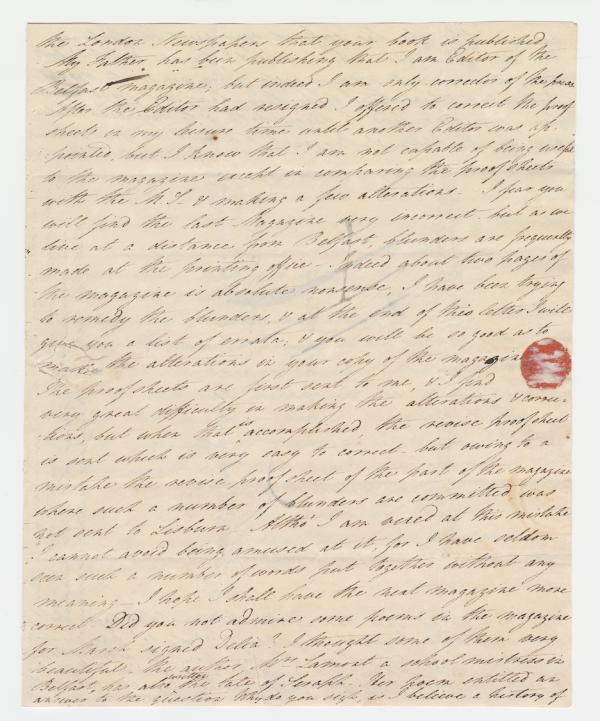 the London Newspapers that your book is published
My Father has been publishing that I am Editor of the
Belfast magazine, but indeed I am only corrector of the press
After the Editor had resigned I offered to correct the proof
sheets in my leisure time until another Editor was ap-
pointed, but I know that I am not capable of being useful
to the magazine except in comparing the proof sheets
with the M.S. & making a few alterations. I fear you
will find the last Magazine very incorrect but as we
live at a distance from Belfast, blunders are frequently
made at the printing office. Indeed about two pages of
the magazine is absolute nonsense, I have been trying
to remedy the blunders, & at the end of this letter I will
give you a list of errata, & you will be so good as to
make the alterations in your copy of the magazine
The proof sheets are first sent to me, & I find
very great difficulty in making the alterations & correc-
tions, but when that is accomplished the revise proof sheet
is sent which is very easy to correct - but owing to a
mistake the revise proof sheet of the part of the magazine
where such a number of blunders are committed was
not sent to Lisburn. Altho' I am vexed at this mistake
I cannot avoid being amused at it, for I have seldom
seen such a number of words put together without any
meaning - I hope I shall have the next magazine more
correct. Did you not admire some poems in the magazine
for March signed Delia? I thought some of them very
beautiful, the author Mrs Lamont a school mistress in
Belfast, has also written the tale of Seraph. Her poem entitled an
answer to the question Why do you sigh, is I believe a history of